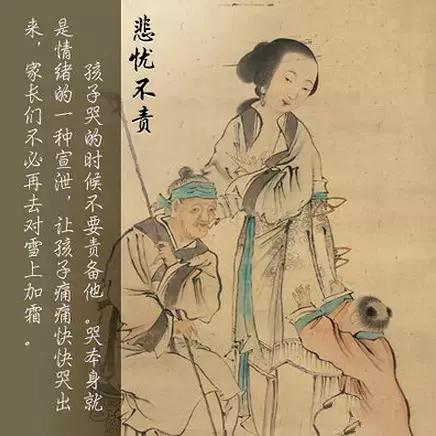 悲忧不责
孩子哭的时候不要责备他。哭本身就
是情绪的一种宣泄，让孩子痛痛快快哭出
来，家长们不必再去对雪上加霜。